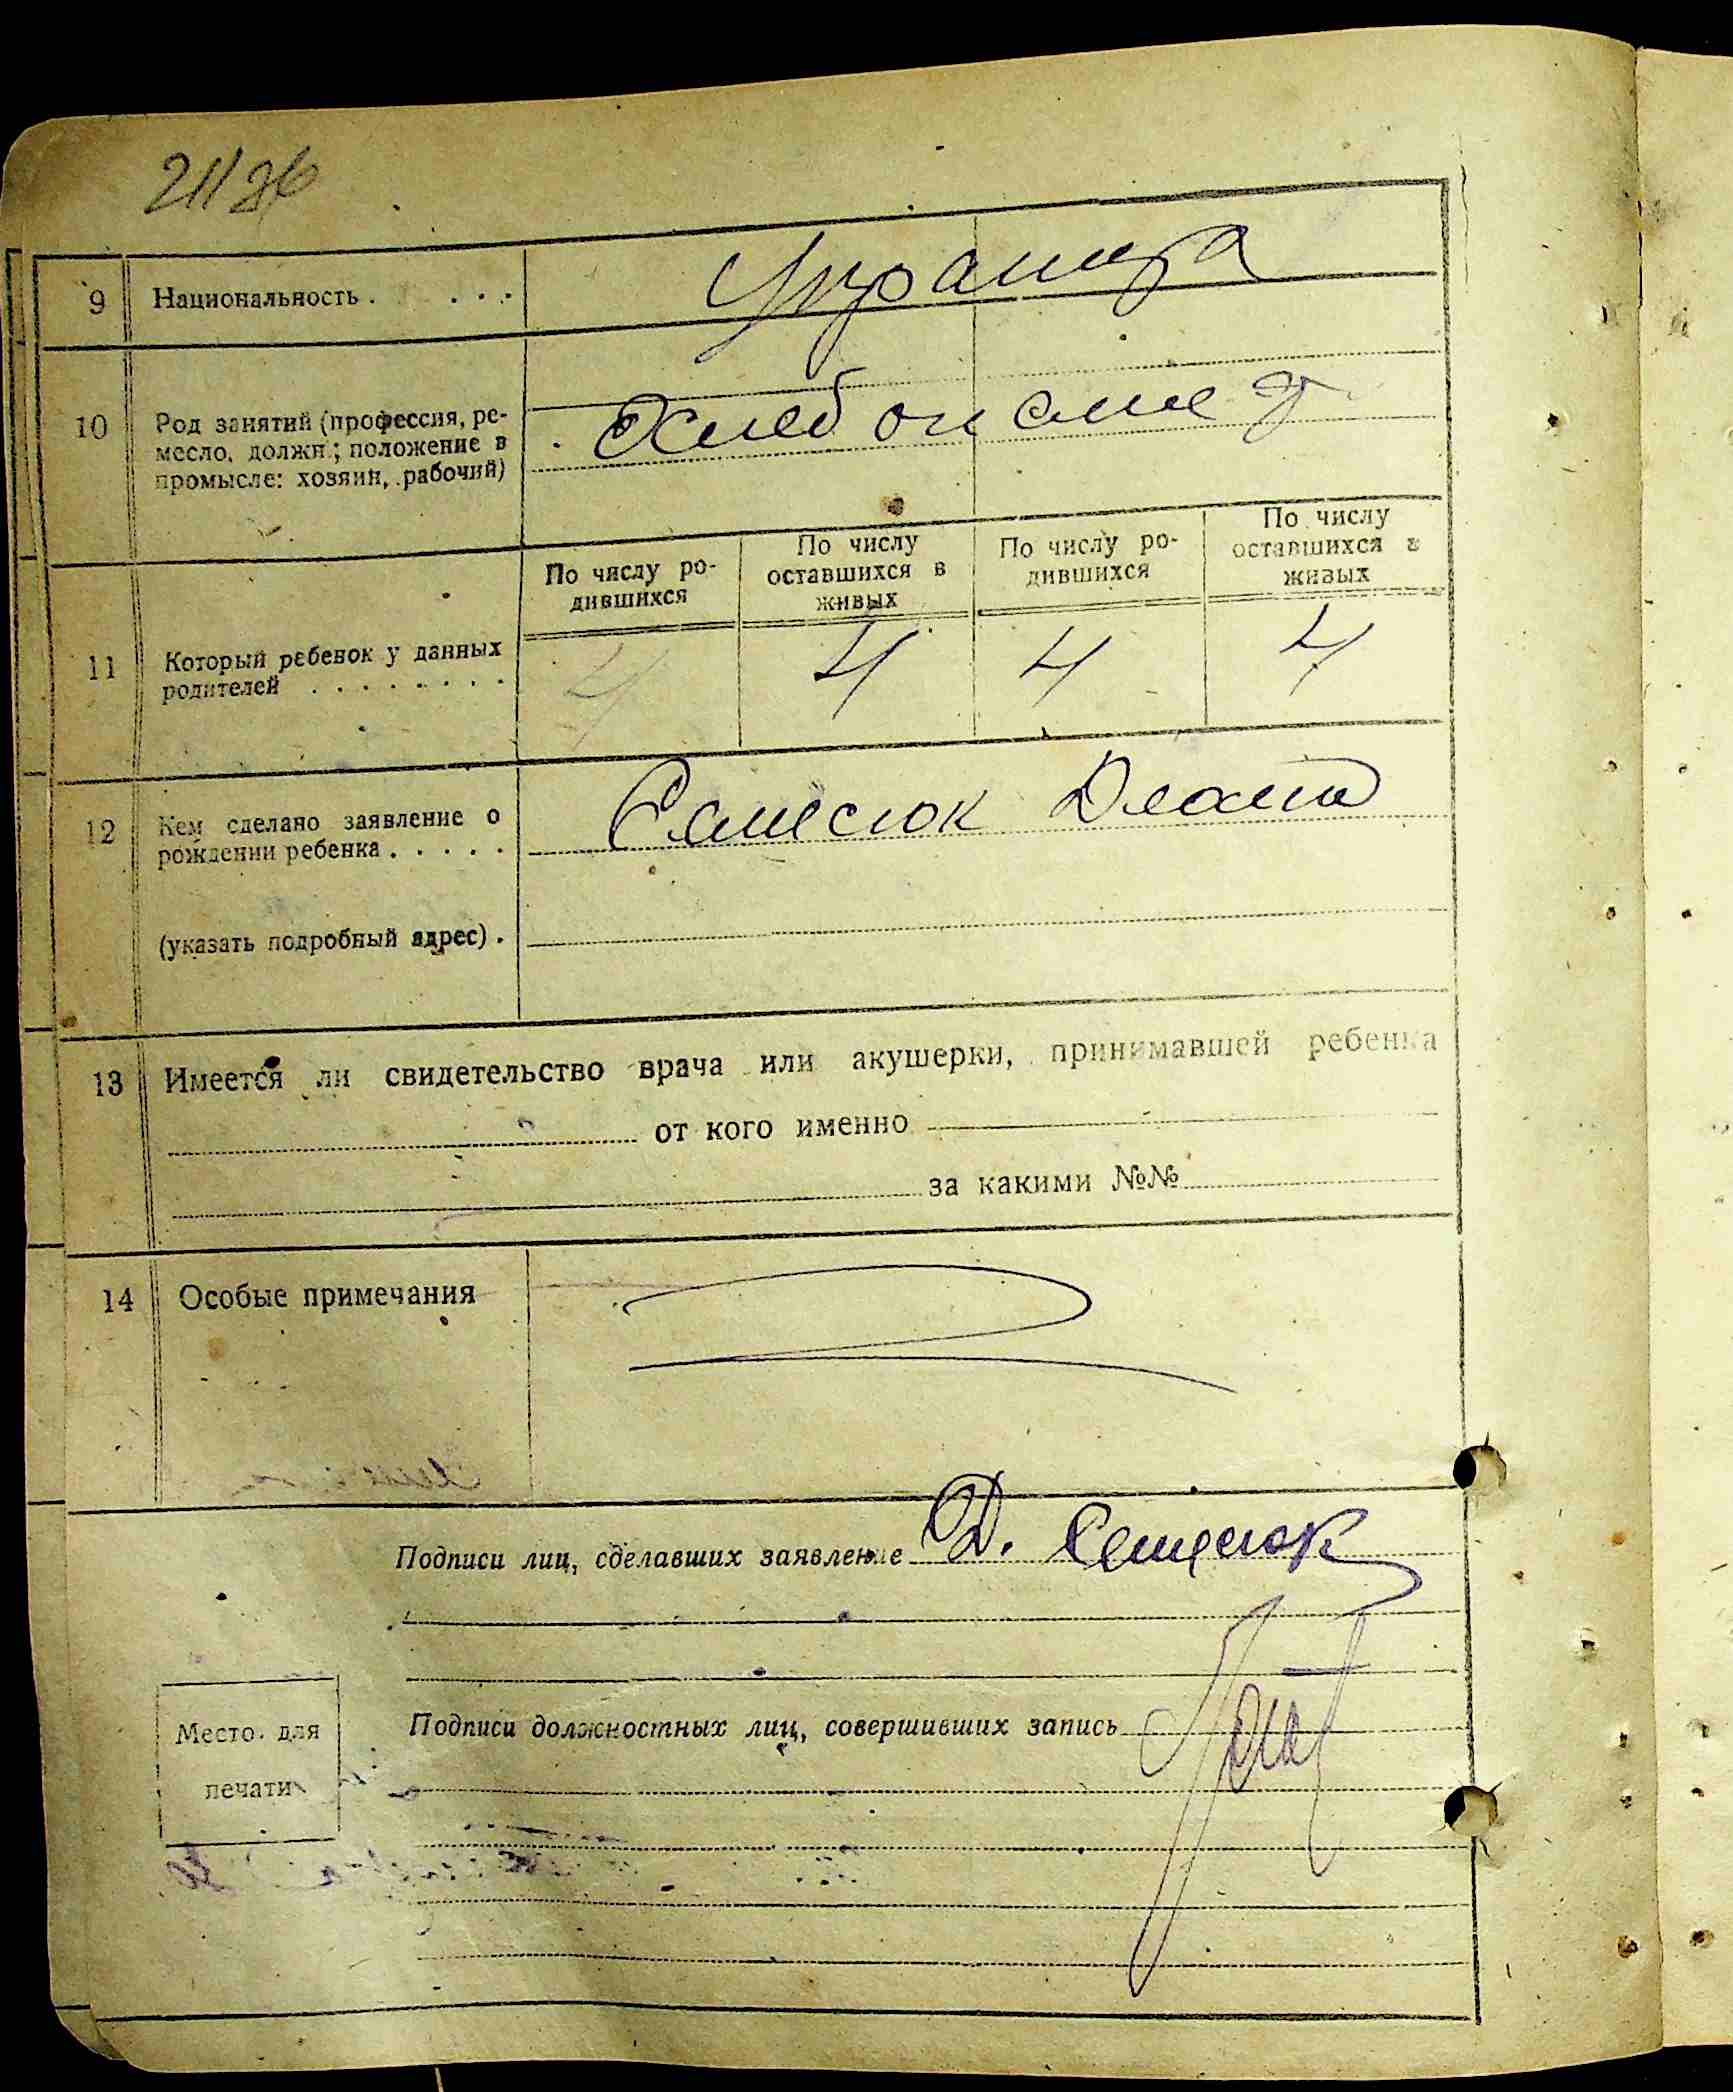 9 Национальность . . . .
10 Род занятий (профессия, ре-
месло, должн.; положение в
промысле: хозяин, рабочий)
По числу ро-
дившихся
По числу
оставшихся в
живых
По числу ро-
дившихся
По числу
оставшихся в
живых
11 Который ребенок у данных
родителей . . . . . . . .
4 4 4 4
12 Кем сделано заявление о
рождении ребенка . . . . .
(указать подробный адрес) .
13 Имеется ли свидетельство врача или акушерки, принимавшей ребенка
от кого именно
за какими №№
14 Особые примечания
Подписи лиц, сделавших заявление Д.
Подписи должностных лиц, совершивших запись
Место для
печати